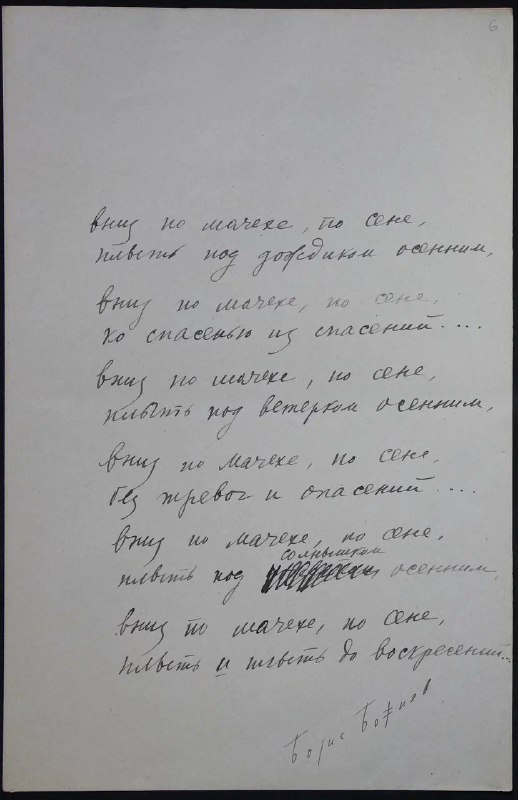 6
вниз по мачехе, по сене,
плыть под дождиком осенним,
вниз по мачехе, по сене,
ко спасенью из спасений....
вниз по мачехе, по сене,
плыть под ветерком осенним,
вниз по мачехе, по сене,
без тревог и опасений....
вниз по мачехе, по сене,
солнышком
плыть под осенним,
вниз по мачехе, по сене,
плыть и плыть до воскресений...
Борис Божнев